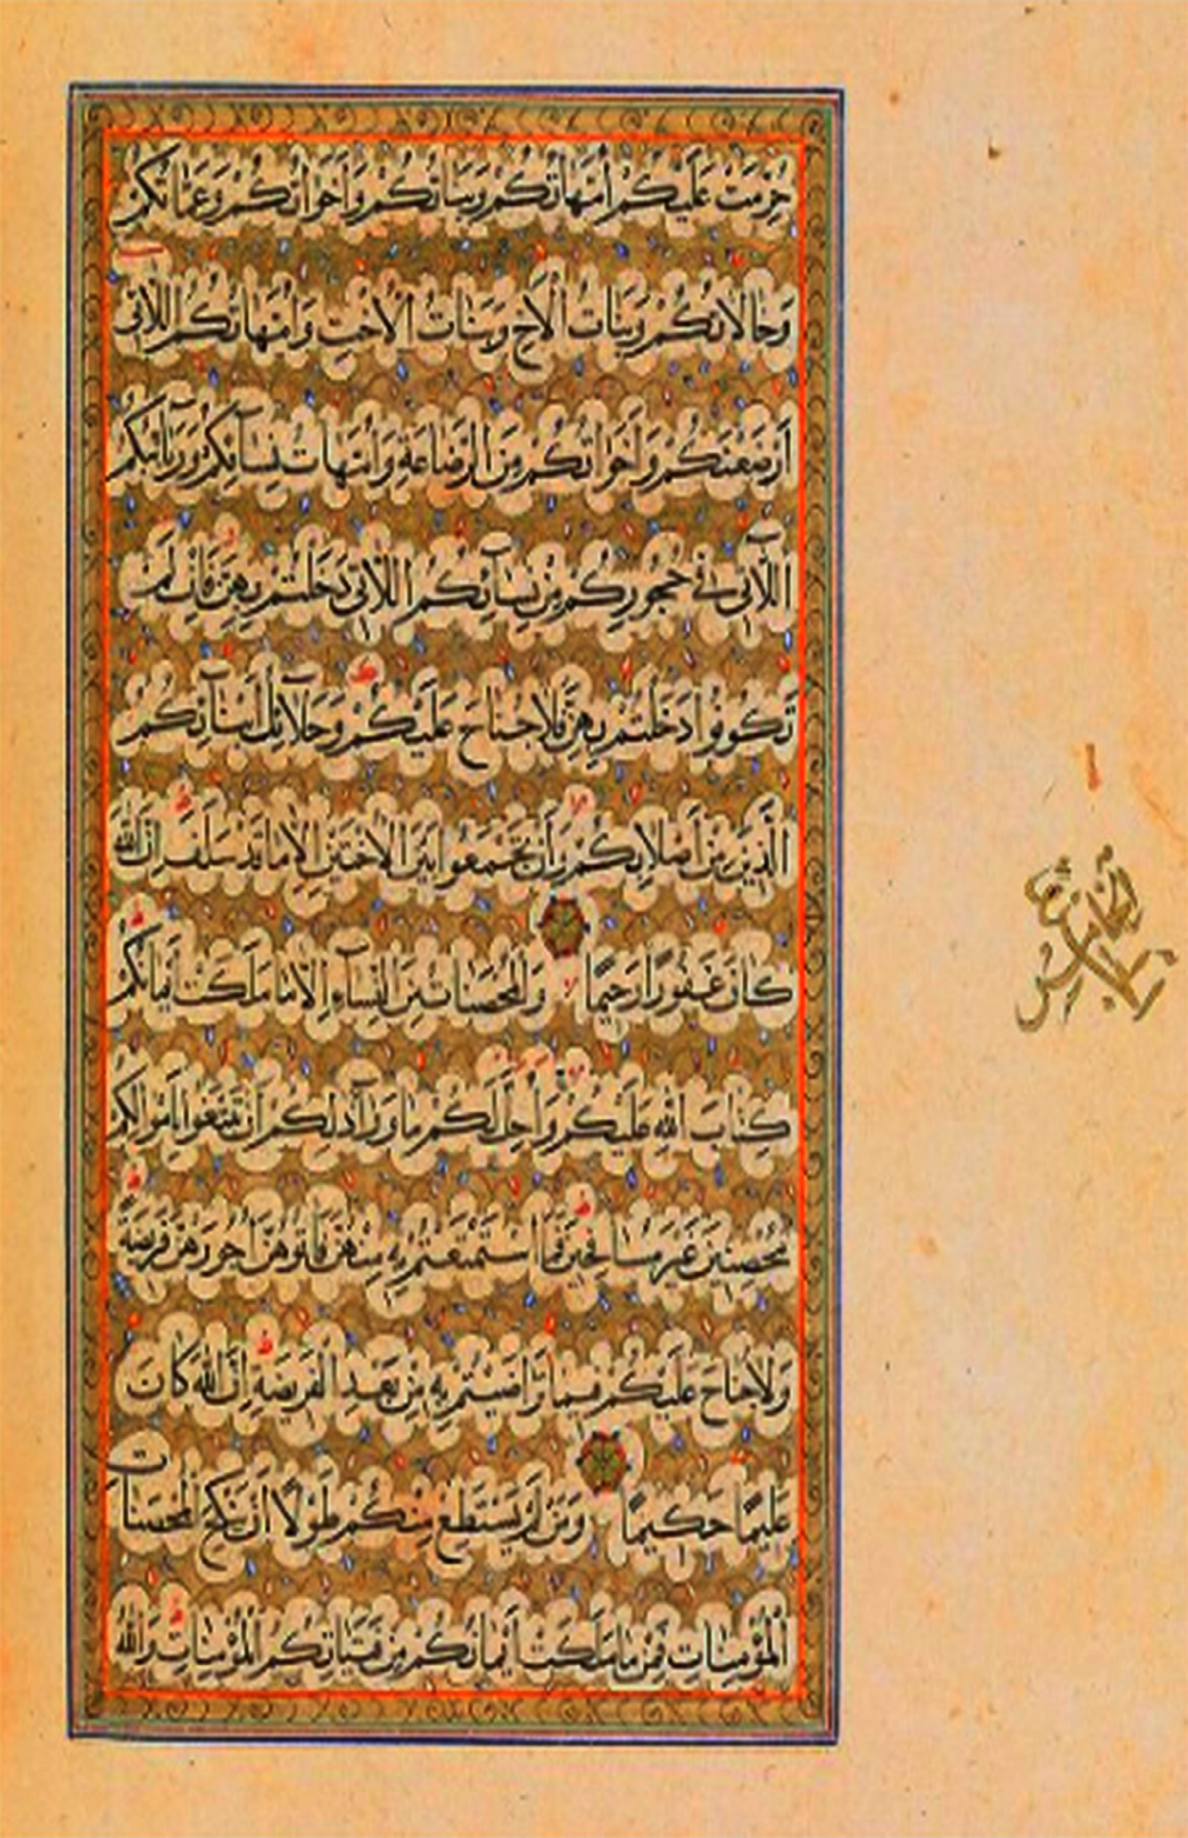 حُرِّمَتْ عَلَيْكُمْ أُمَّهَاتُكُمْ وَبَنَاتُكُمْ وَأَخَوَاتُكُمْ وَعَمَّاتُكُمْ
وَخَالَاتُكُمْ وَبَنَاتُ الْأَخِ وَبَنَاتُ الْأُخْتِ وَأُمَّهَاتُكُمُ اللَّاتِي
أَرْضَعْنَكُمْ وَأَخَوَاتُكُمْ مِنَ الرَّضَاعَةِ وَأُمَّهَاتُ نِسَآئِكُمْ وَرَبَآئِبُكُمُ
اللَّاتِي فِي حُجُورِكُمْ مِنْ نِسَآئِكُمُ اللَّاتِي دَخَلْتُمْ بِهِنَّ فَإِنْ لَمْ
تَكُونُوا دَخَلْتُمْ بِهِنَّ فَلَا جُنَاحَ عَلَيْكُمْ وَحَلَآئِلُ أَبْنَآئِكُمُ
الَّذِينَ مِنْ أَصْلَابِكُمْ وَأَنْ تَجْمَعُوا بَيْنَ الْأُخْتَيْنِ إِلَّا مَا قَدْ سَلَفَ إِنَّ اللَّهَ
كَانَ غَفُورًا رَحِيمًا وَالْمُحْصَنَاتُ مِنَ النِّسَآءِ إِلَّا مَا مَلَكَتْ أَيْمَانُكُمْ
كِتَابَ اللَّهِ عَلَيْكُمْ وَأُحِلَّ لَكُمْ مَا وَرَآءَ ذَلِكُمْ أَنْ تَبْتَغُوا بِأَمْوَالِكُمْ
مُحْصِنِينَ غَيْرَ مُسَافِحِينَ فَمَا اسْتَمْتَعْتُمْ بِهِ مِنْهُنَّ فَآتُوهُنَّ أُجُورَهُنَّ فَرِيضَةً
وَلَا جُنَاحَ عَلَيْكُمْ فِيمَا تَرَاضَيْتُمْ بِهِ مِنْ بَعْدِ الْفَرِيضَةِ إِنَّ اللَّهَ كَانَ
عَلِيمًا حَكِيمًا وَمَنْ لَمْ يَسْتَطِعْ مِنْكُمْ طَوْلًا أَنْ يَنْكِحَ الْمُحْصَنَاتِ
الْمُؤْمِنَاتِ فَمِنْ مَا مَلَكَتْ أَيْمَانُكُمْ مِنْ فَتَيَاتِكُمُ الْمُؤْمِنَاتِ وَاللَّهُ